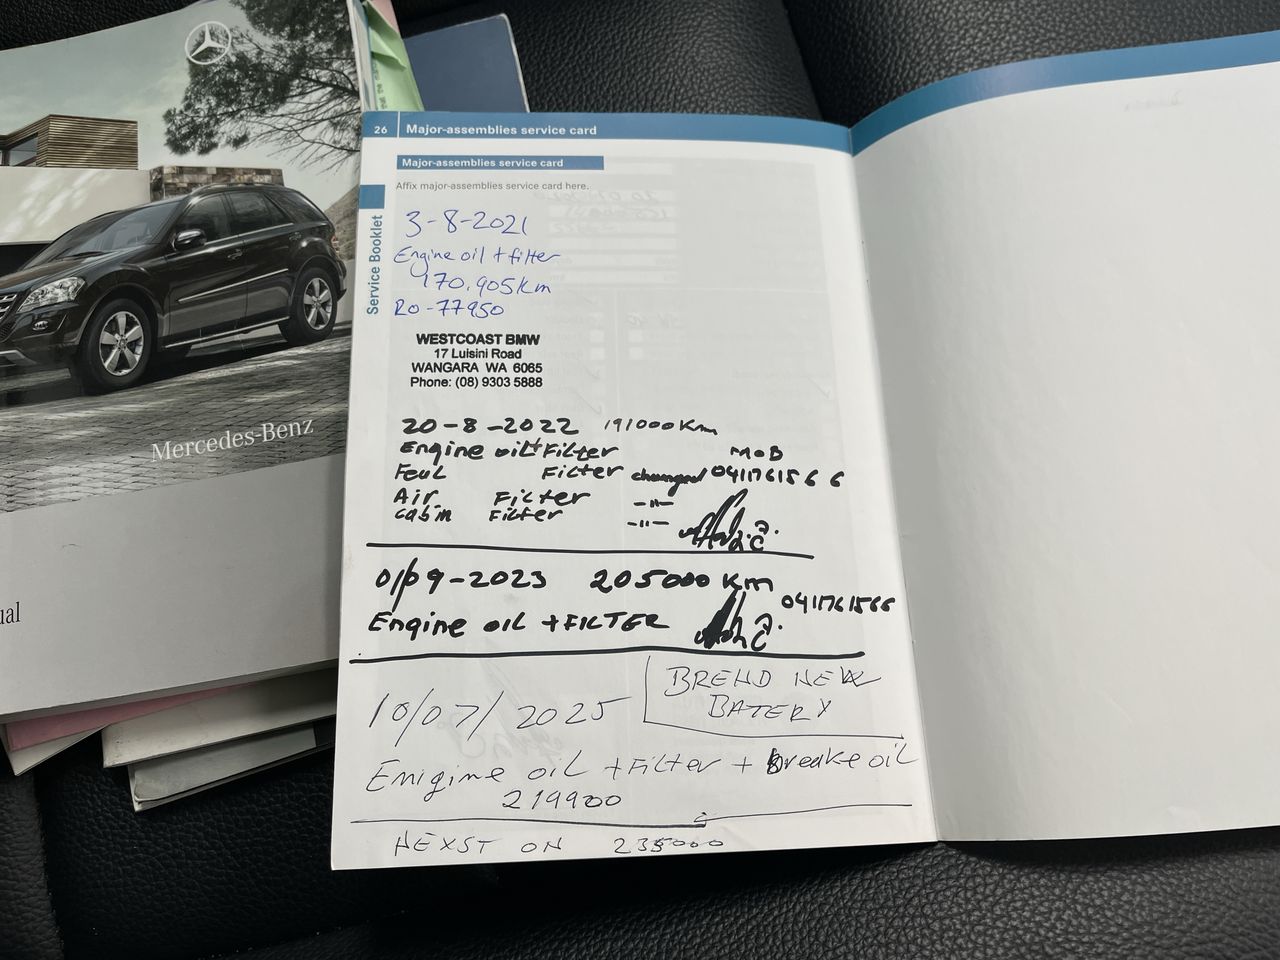 Mercedes-Benz
ual
26 Major-assemblies service card
Major-assemblies service card
Affix major-assemblies service card here.
Service Booklet
3-8-2021
Engine oil + filter
170.905km
RO-77950
WESTCOAST BMW
17 Luisini Road
WANGARA WA 6065
Phone: (08) 9303 5888
20-8-2022 191000Km
Engine oil+Filter MOB
Feul Filter changed 0411761566
Air Filter -11-
cabin Filter -11-
01/09-2023 205000 Km
0411761566
Engine oil +FILTER
BREND NEW
BATERY
10/07/2025
Enigine oil +Filter + breake oil
219900
NEXST ON 235000